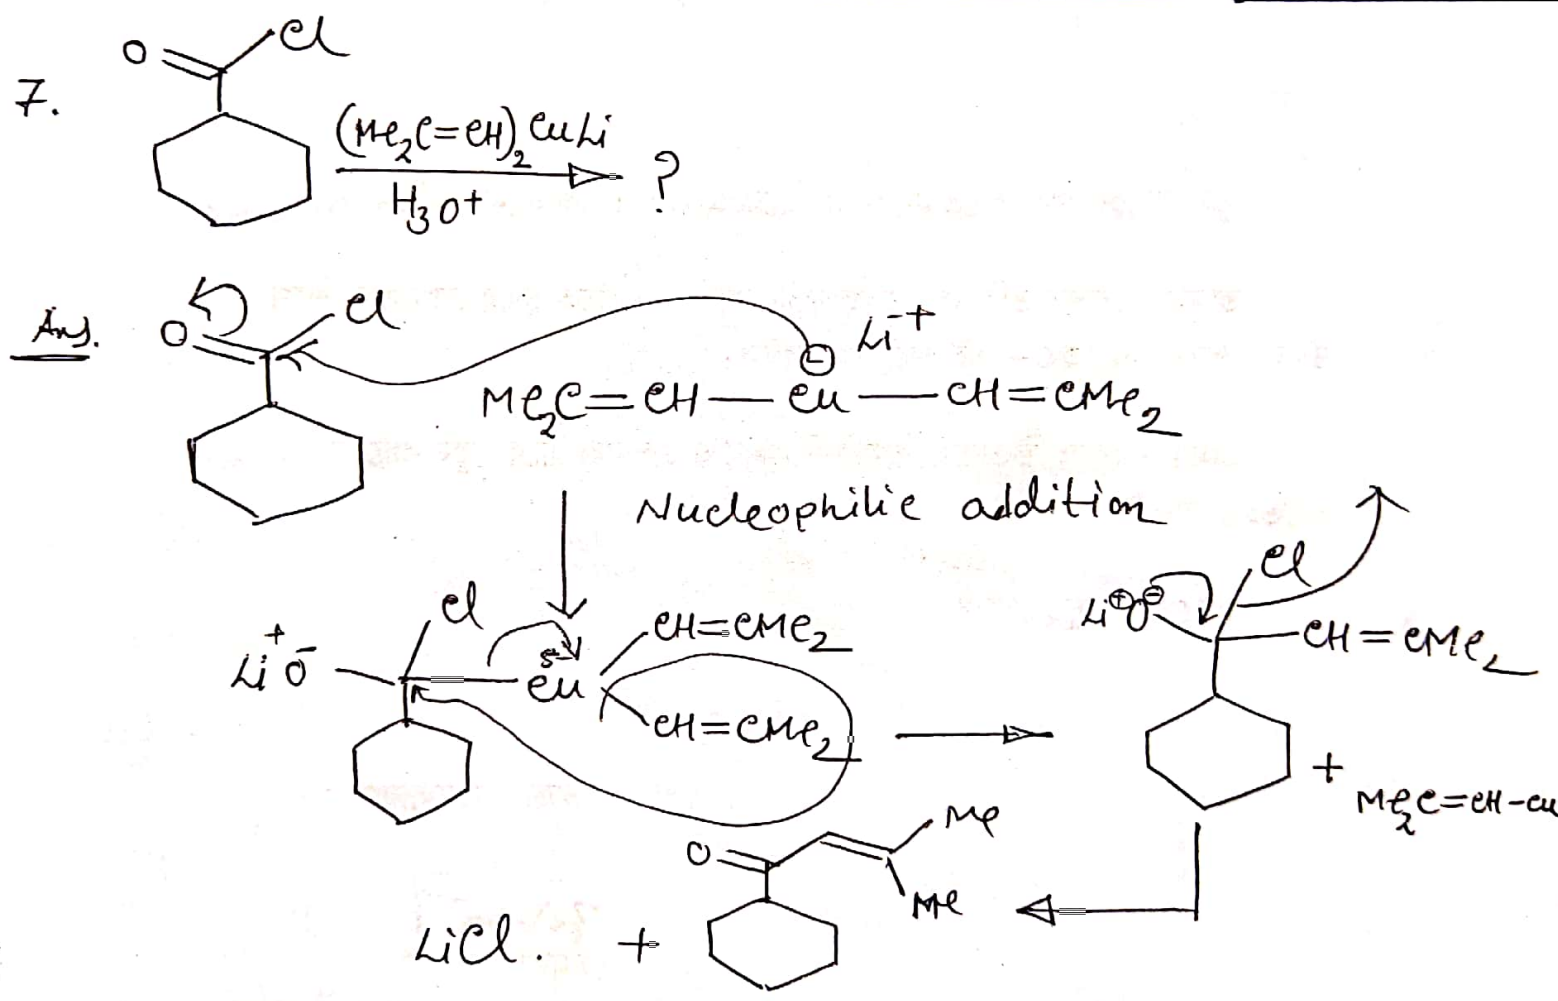 7.
O Cl
(Me2C=CH)2CuLi
H3O+
?
Ans.
O Cl
Li+
⊖
Me2C=CH—Cu—CH=CMe2
Nucleophilic addition
Li+ O- Cl
δ-
Cu
CH=CMe2
CH=CMe2
Li⊕ O⊖ Cl
CH=CMe2
+
Me2C=CH-Cu
O Me
Me
LiCl. +